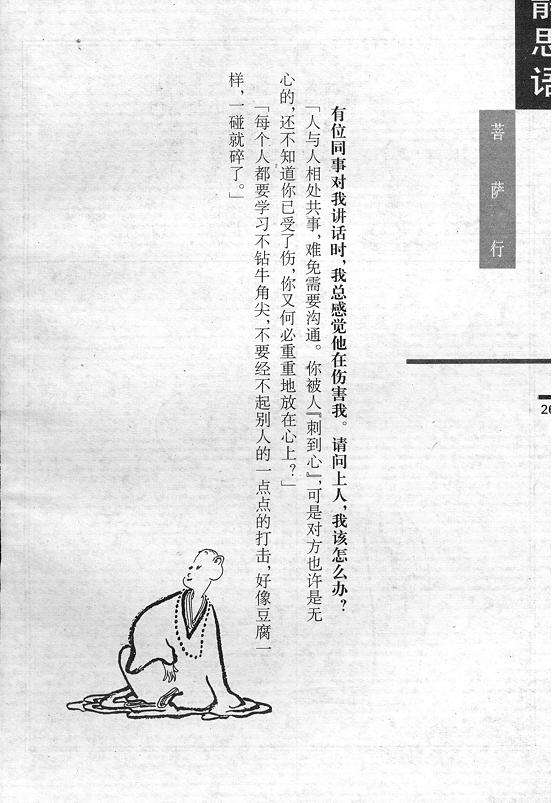 静思语
菩萨行
26
有位同事对我讲话时，我总感觉他在伤害我。请问上人，我该怎么办？
「人与人相处共事，难免需要沟通。你被人『刺到心』，可是对方也许是无
心的，还不知道你已受了伤，你又何必重重地放在心上？」
「每个人都要学习不钻牛角尖，不要经不起别人的一点点的打击，好像豆腐一
样，一碰就碎了。」